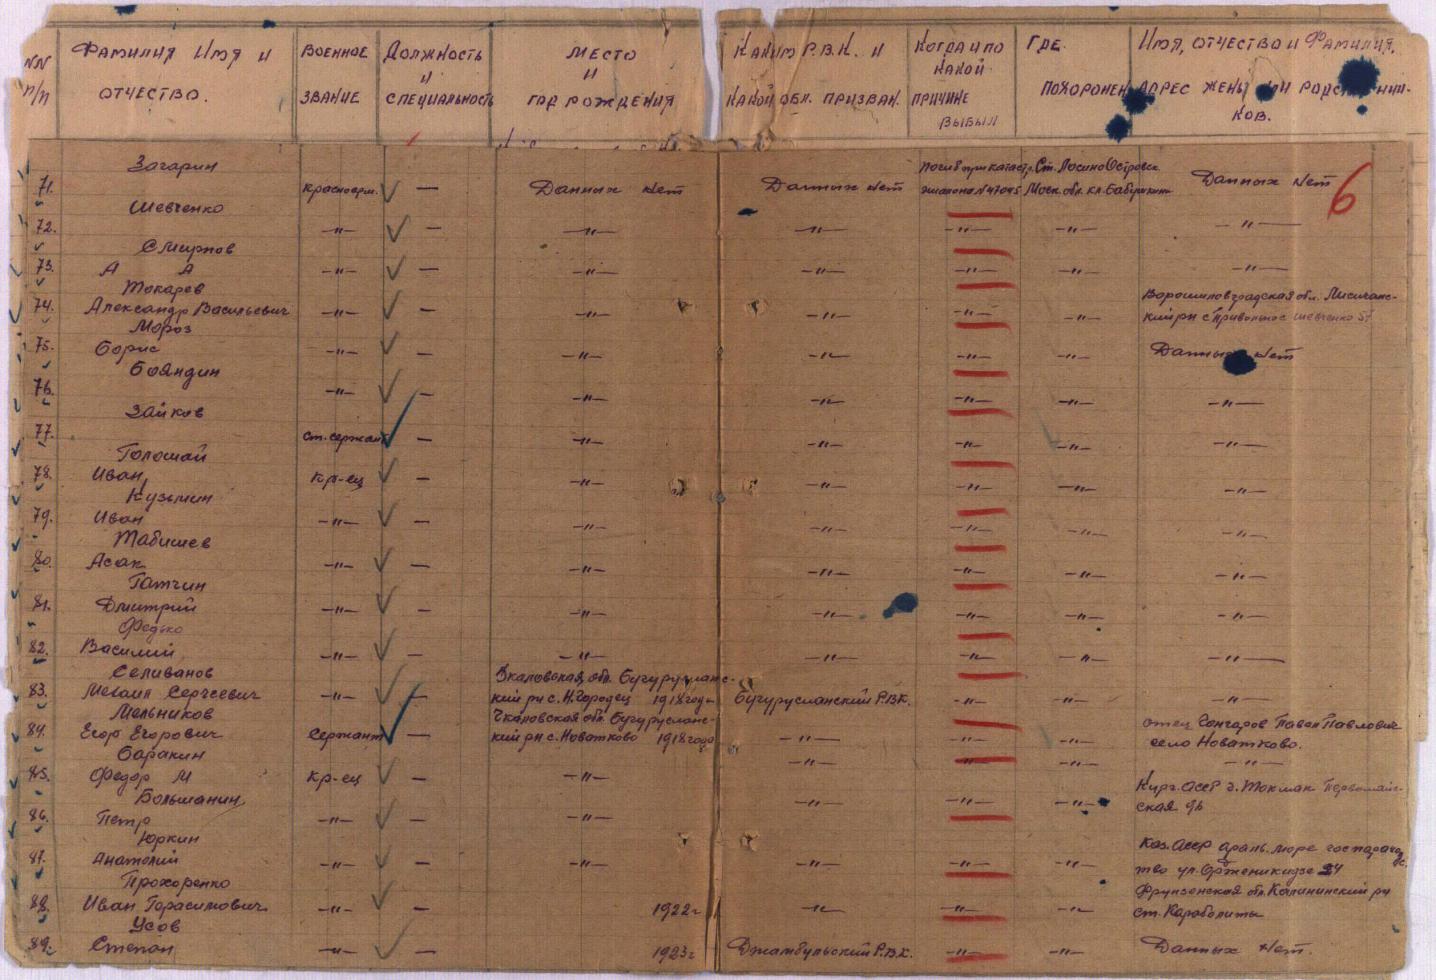 NN п/п | Фамилия Имя и отчество. | Военное звание | Должность и специальность | Место и год рождения | Каким Р.В.К. и какой обл. призван. | Когда и по какой причине выбыл | Где похоронен | Имя, отчество и фамилия, адрес жены или родственников.
6
71. Загарин | Красноарм. | — | Данных нет | Данных нет | Погиб при катастр. эшалона N 47045 | Ст. Лосино Островск. Моск. обл. кл. Бабушкин | Данных нет
72. Шевченко | —"— | — | —"— | —"— | —"— | —"— | —"—
73. Смирнов А А | —"— | — | —"— | —"— | —"— | —"— | —"—
74. Токарев Александр Васильевич | —"— | — | —"— | —"— | —"— | —"— | Ворошиловградская обл. Лисичанский рн с Привольное Шевченко
75. Мороз Борис | —"— | — | —"— | —"— | —"— | —"— | Данных нет
76. Бояндин | —"— | — | —"— | —"— | —"— | —"— | —"—
77. Зайков | ст. сержант | — | —"— | —"— | —"— | —"— | —"—
78. Голошай Иван | кр-ец | — | —"— | —"— | —"— | —"— | —"—
79. Кузьмин Иван | —"— | — | —"— | —"— | —"— | —"— | —"—
80. Табишев Асак | —"— | — | —"— | —"— | —"— | —"— | —"—
81. Гатчин Дмитрий | —"— | — | —"— | —"— | —"— | —"— | —"—
82. Федько Василий | —"— | — | —"— | —"— | —"— | —"— | —"—
83. Селиванов Михаил Сергеевич | —"— | — | Чкаловская, обл. Бугурусланский рн с. Н. Городец 1918 год | Бугурусланский Р.В.К. | —"— | —"— | —"—
84. Мельников Егор Егорович | Сержант | — | Чкаловская обл. Бугурусланский рн с. Новатково 1918 года | —"— | —"— | —"— | отец Гончаров Павел Павлович село Новатково.
85. Баракин Федор М | кр-ец | — | —"— | —"— | —"— | —"— | —"—
86. Большанин Петр | —"— | — | —"— | —"— | —"— | —"— | Кирг. АССР г. Токмак Первомайская 96
87. Юркин Анатолий | —"— | — | —"— | —"— | —"— | —"— | Каз. АССР араль. море ул. Орженикидзе 24
88. Прохоренко Иван Герасимович | —"— | — | 1922 г | —"— | —"— | —"— | Фрунзенская обл. Калининский рн ст. Карабалты
89. Усов Степан | —"— | — | 1923 г | Джамбульский Р.В.К. | —"— | —"— | Данных нет.